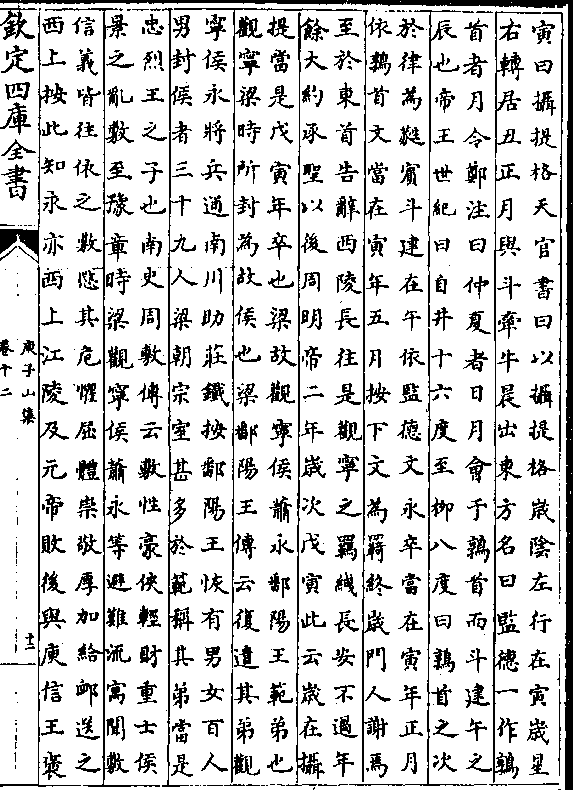 寅曰攝提格天官書曰以攝提格歲陰左行在寅歲星
右轉居丑正月與斗牽牛晨出東方名曰監德一作鶉
首者月令鄭注曰仲夏者日月會于鶉首而斗建午之
辰也帝王世紀曰自井十六度至栁八度曰鶉首之次
於律為蕤賓斗建在午依監德文永卒當在寅年正月
依鶉首文當在寅年五月按下文為羇終歲門人謝焉
至於東首告辭西陵長往是觀寧之羈綫長安不過年
餘大約承聖以後周明帝二年歲次戊寅此云歲在攝
提當是戊寅年卒也梁故觀寧侯蕭永鄱陽王範弟也
觀寧梁時所封為故侯也梁鄱陽王傳云復遣其弟觀
寧侯永將兵通南川助莊鐵按鄱陽王恢有男女百人
男封侯者三十九人梁朝宗室甚多於範稱其弟當是
忠烈王之子也南史周敷傳云敷性豪俠輕財重士侯
景之亂敷至豫章時梁觀寧侯蕭永等避難流寓聞敷
信義皆往依之敷愍其危懼屈體崇敬厚加給䘏送之
西上按此知永亦西上江陵及元帝敗後與庾信王襃
欽定四庫全書
庾子山集
卷十二
十二